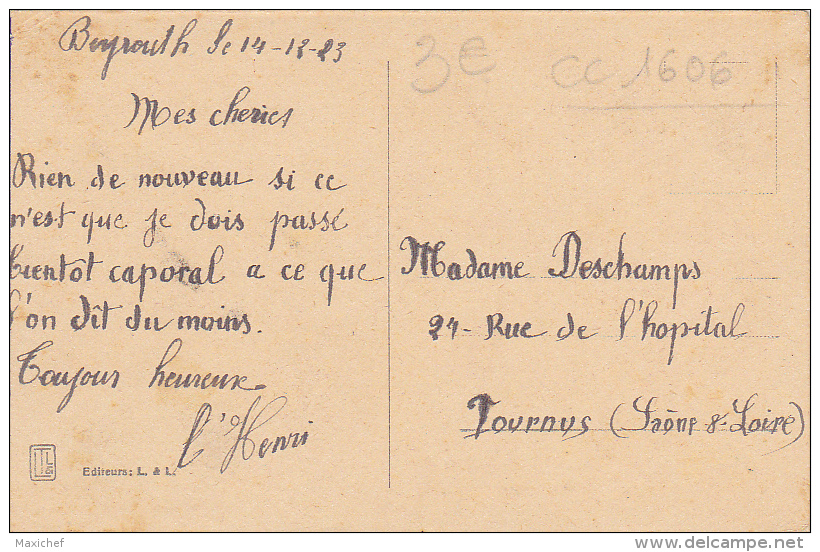 Beyrouth le 14-12-23
3€
CC 1606
Mes cheries
Rien de nouveau si ce
n'est que je dois passé
bientôt caporal a ce que
l'on dit du moins.
Toujour heureux
l'Henri
Editeurs: L. & L.
Madame Deschamps
24- Rue de l'hopital
Tournus (Saône & Loire)
Maxichef
www.delcampe.net